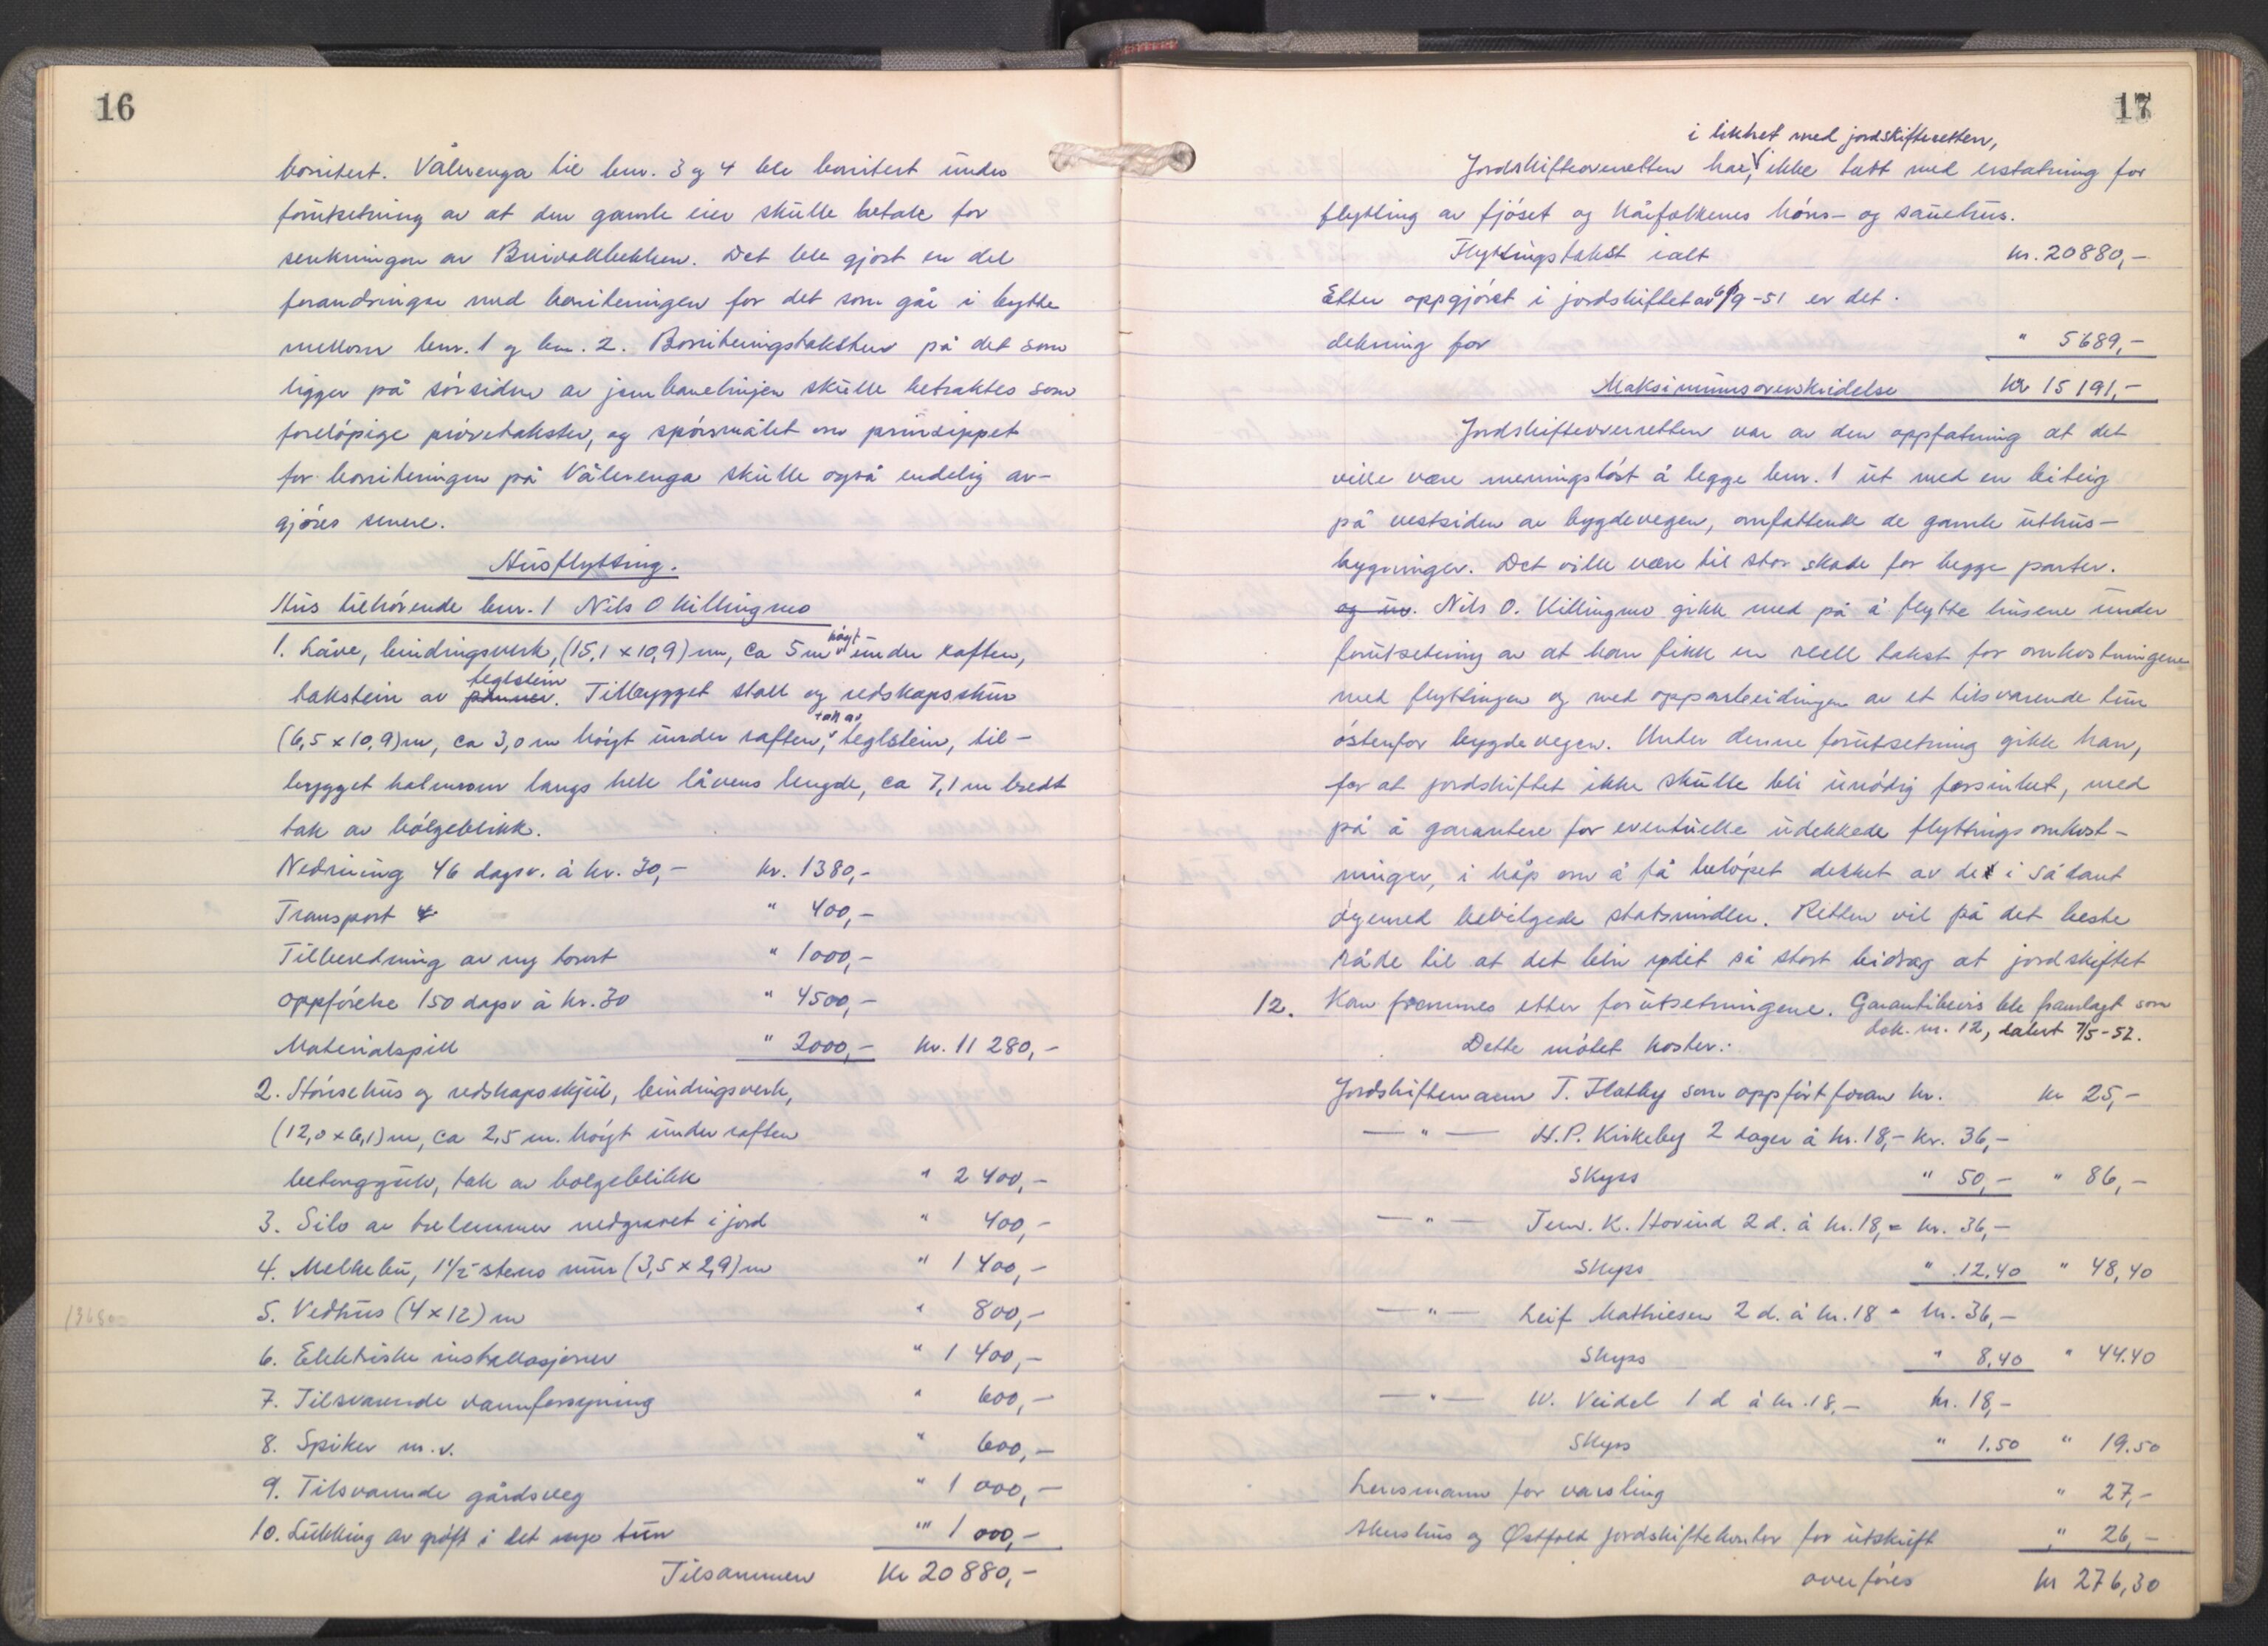 16
bonitert. Vålerenga til bnr. 3 og 4 ble bonitert under
forutsetning av at den gamle eier skulle betale for
senkningen av Buivollbekken. Det ble gjort en del
forandringer med boniteringen for det som går i bytte
mellom bnr. 1 og bnr. 2. Boniteringstaksten på det som
ligger på sørsiden av jernbanelinjen skulle betraktes som
foreløpige prøvetakster, og spørsmålet om prinsippet
for boniteringen på Vålerenga skulle også endelig av-
gjøres senere.
Husflytting.
Hus tilhørende bnr. 1 Nils O Killingmo
1. Låve, bindingsverk, (15,1 x 10,9) m, ca 5 m høgt under raften,
takstein av panner teglstein. Tilbygget stall og redskapsskur
(6,5 x 10,9) m, ca 3,0 m høgt under raften, tak av teglstein, til-
bygget halmrom langs hele låvens lengde, ca 7,1 m bredt
tak av bølgeblikk.
Nedriving 46 dagsv. à kr. 30,- kr. 1380,-
Transport " 400,-
Tilberedning av ny tomt " 1000,-
Oppførelse 150 dagsv à kr. 30 " 4500,-
Materialspill " 2000,- kr. 11 280,-
2. Hønsehus og redskapsskjul, bindingsverk,
(12,0 x 6,1) m, ca 2,5 m. høgt under raften
betonggulv, tak av bølgeblikk " 2 400,-
3. Silo av trelemmer nedgravet i jord " 400,-
4. Melkebu, 1 1/2 stens mur (3,5 x 2,9) m " 1 400,-
5. Vedhus (4 x 12) m " 800,-
6. Elektriske installasjoner " 1 400,-
7. Tilsvarende vannforsyning " 600,-
8. Spiker m.v. " 600,-
9. Tilsvarende gårdsveg " 1 000,-
10. Lukking av grøft i det nye tun " 1 000,-
Tilsammen Kr 20 880,-
17
i likhet med jordskifteretten,
Jordskifteoverretten har, ikke tatt med erstatning for
flytting av fjøset og kårfolkenes høns- og sauehus.
Flyttingstakst ialt kr. 20880,-
Etter oppgjøret i jordskiftet av 6/9-51 er det
dekning for " 5689,-
Maksimumsoverskridelse kr 15 191,-
Jordskifteoverretten var av den oppfatning at det
ville være meningsløst å legge bnr. 1 ut med en biteig
på vestsiden av bygdevegen, omfattende de gamle uthus-
bygninger. Det ville være til stor skade for begge parter.
Nils O. Killingmo gikk med på å flytte husene under
forutsetning av at han fikk en reell takst for omkostningene
med flyttingen og med opparbeidingen av et tilsvarende tun
østenfor bygdevegen. Under denne forutsetning gikk han,
for at jordskiftet ikke skulle bli unødig forsinket, med
på å garantere for eventuelle udekkede flyttingsomkost-
ninger, i håp om å få beløpet dekket av de i sådant
øyemed bevilgede statsmidler. Retten vil på det beste
råde til at det blir ydet så stort bidrag at jordskiftet
12. Kan fremmes etter forutsetningene. Garantibevis ble framlagt som
dok. nr. 12, datert 7/5-52.
Dette møtet koster:
Jordskiftemann T. Flatby som oppført foran kr. kr 25,-
— " — H.P. Kirkeby 2 dager à kr. 18,- kr. 36,-
Skyss " 50,- " 86,-
— " — Jens. K. Hovind 2 d. à kr. 18,- kr. 36,-
Skyss " 12.40 " 48,40
— " — Leif Mathiesen 2 d. à kr. 18 - kr. 36,-
Skyss " 8,40 " 44.40
— " — W. Veidel 1 d à kr. 18,- kr. 18,-
Skyss " 1.50 " 19.50
Lensmann for varsling " 27,-
Akershus og Østfold jordskiftekontor for utskrift " 26,-
overføres kr 276,30